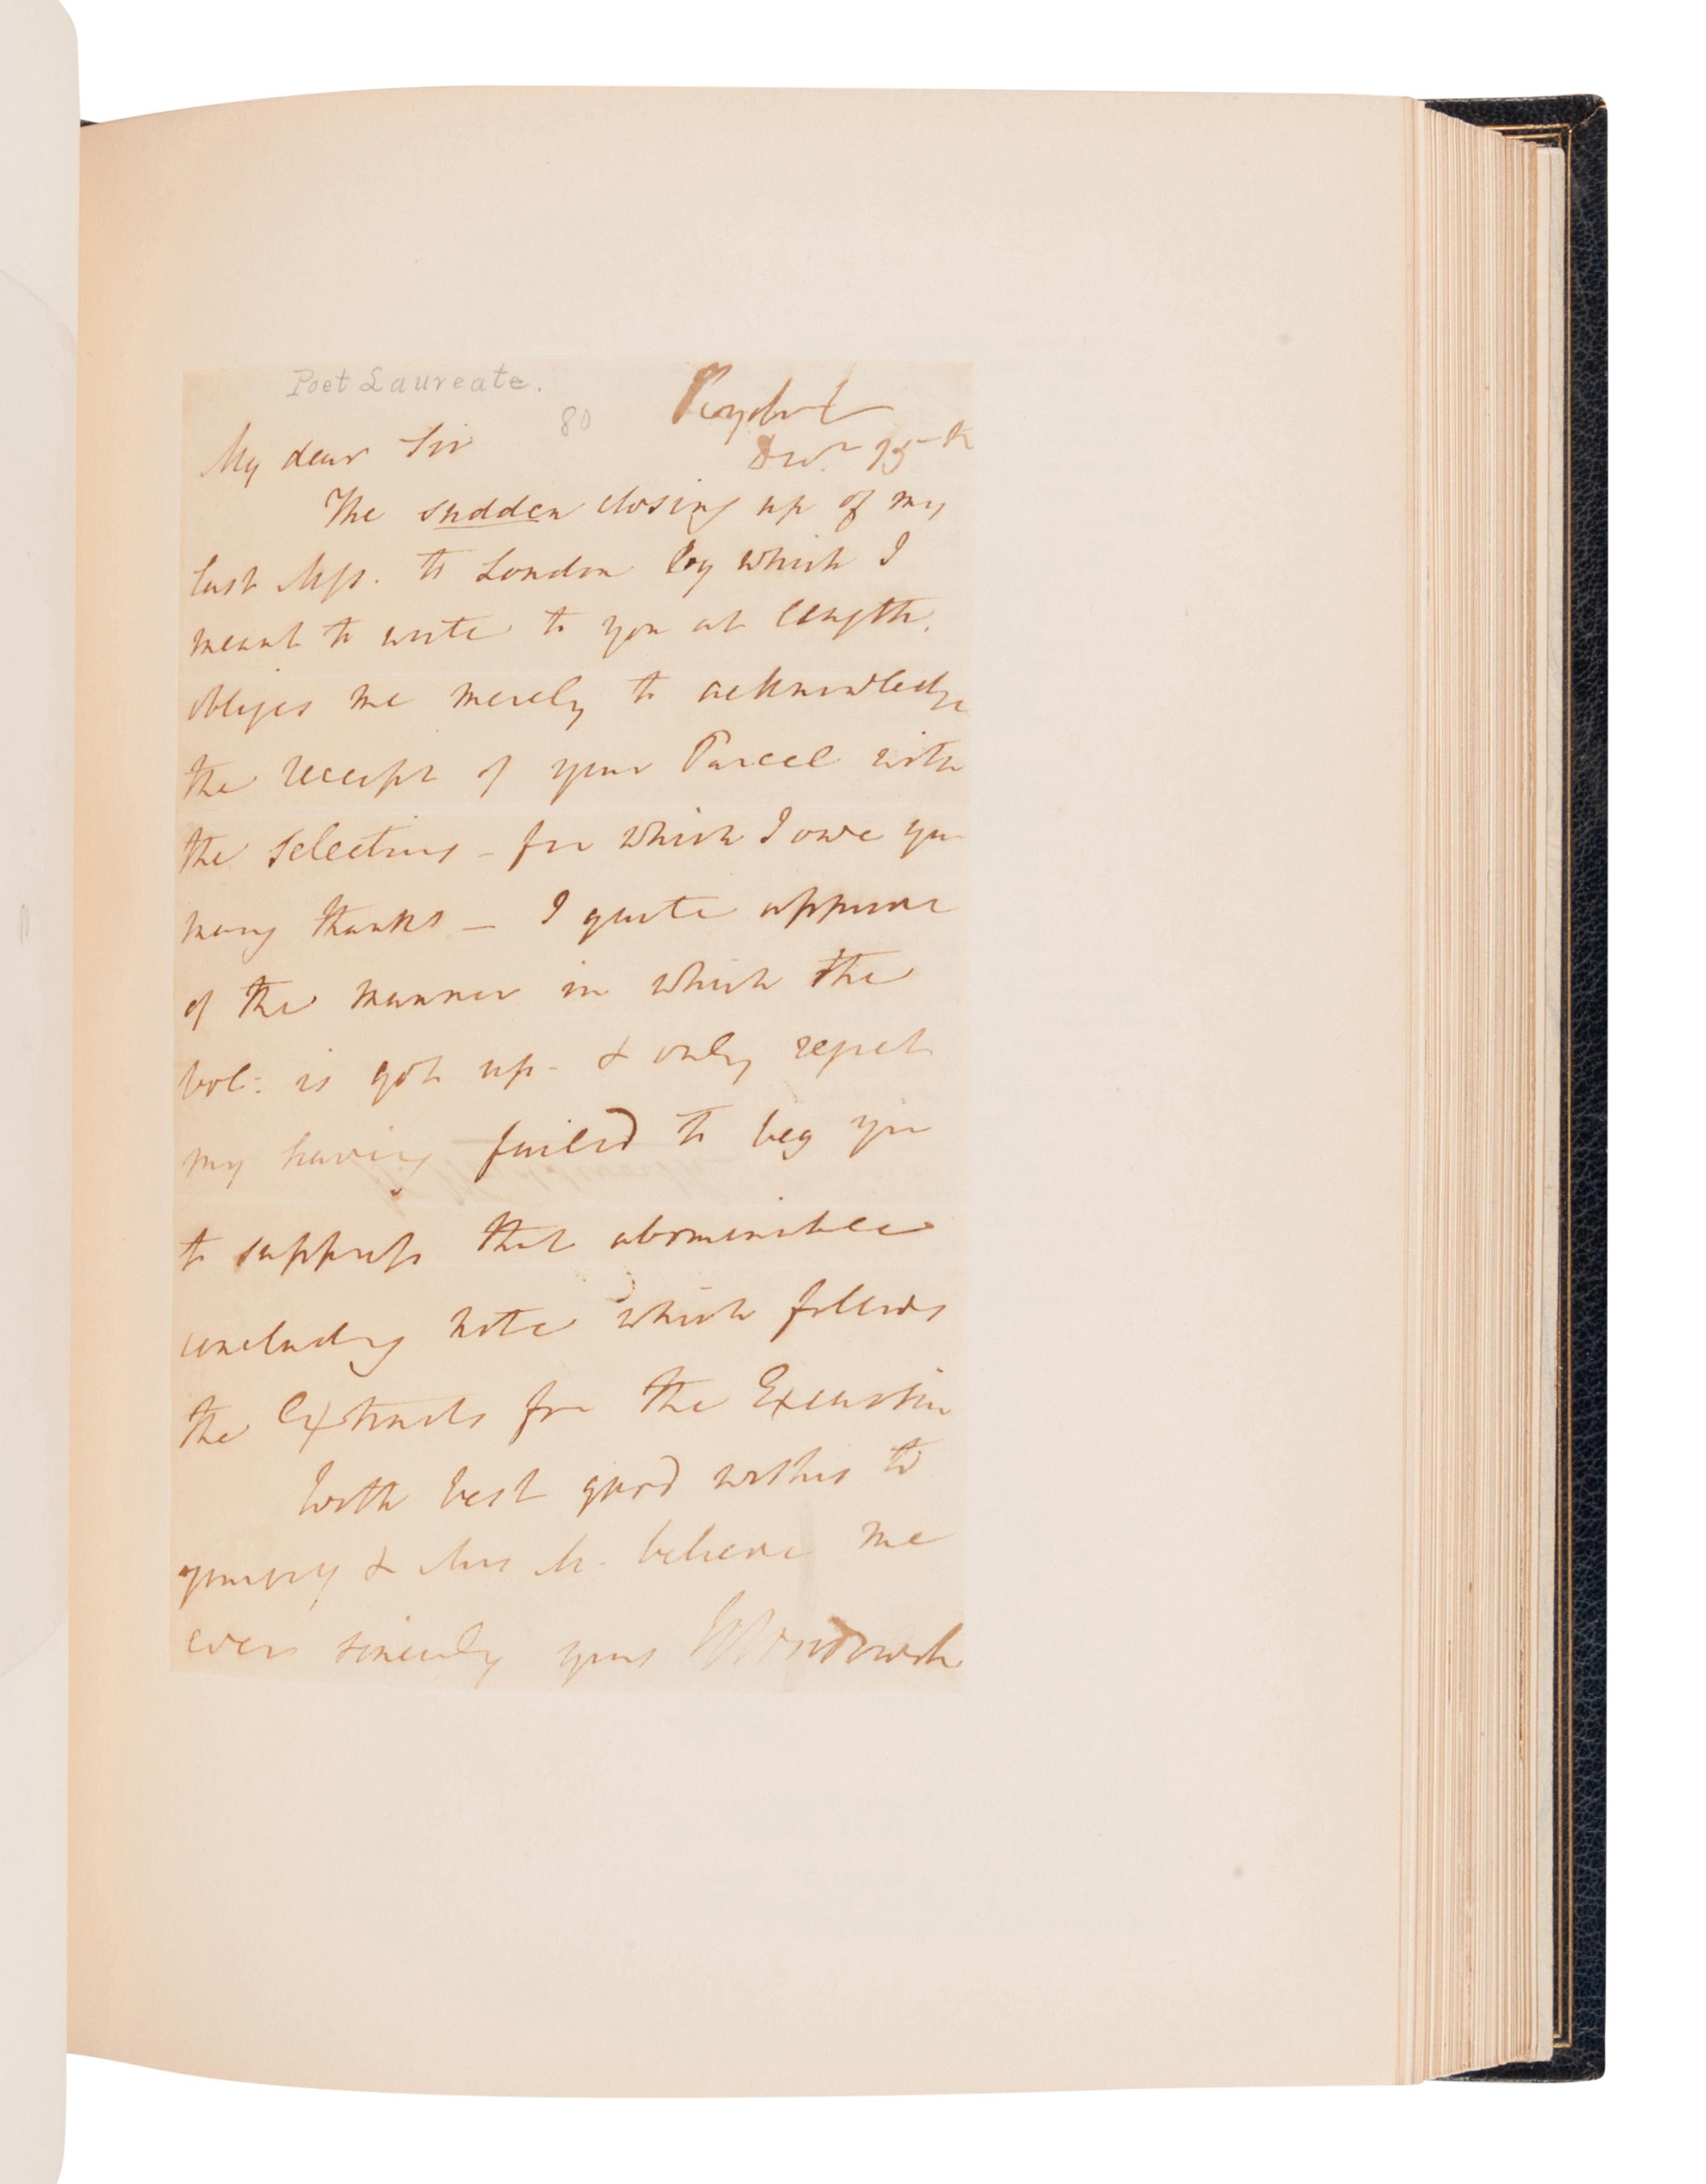 Poet Laureate.
80
Rydal
Decr 15th
My dear Sir
The sudden closing up of my
last Mss. to London by which I
meant to write to you at length,
obliges me merely to acknowledge
the receipt of your Parcel with
the Selections – for which I owe you
many thanks – I quite approve
of the manner in which the
vol: is got up – & only regret
my having failed to beg you
to suppress that abominable
concluding note which follows
the Extracts for the Excursion
With best good wishes to
yourself & Mrs M. believe me
ever sincerely yours Wm Wordsworth